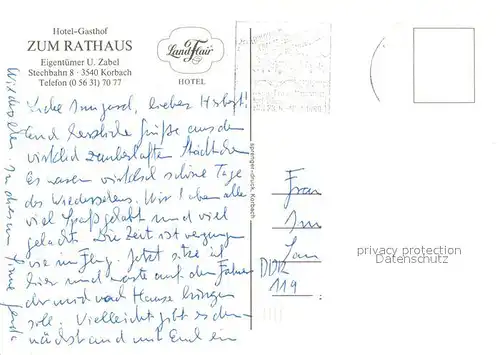 Hotel-Gasthof
ZUM RATHAUS
Eigentümer U. Zabel
Stechbahn 8 · 3540 Korbach
Telefon (0 56 31) 70 77
Land Flair
HOTEL
Liebe Irmgard, lieber Herbert!
Und herzliche Grüße aus dem
wirklich zauberhaften Städtchen
Es waren wirklich schöne Tage
des Wiedersehens. Wir haben alle
viel Spaß gehabt und viel
gelacht. Die Zeit ist vergangen
wie im Flug. Jetzt sitze ich
hier und warte auf den Fahrer
der mich nach Hause bringen
soll. Vielleicht gibt es
nächst und mit ein
sprenger-druck, Korbach
Frau
DDR
119
privacy protection
Datenschutz